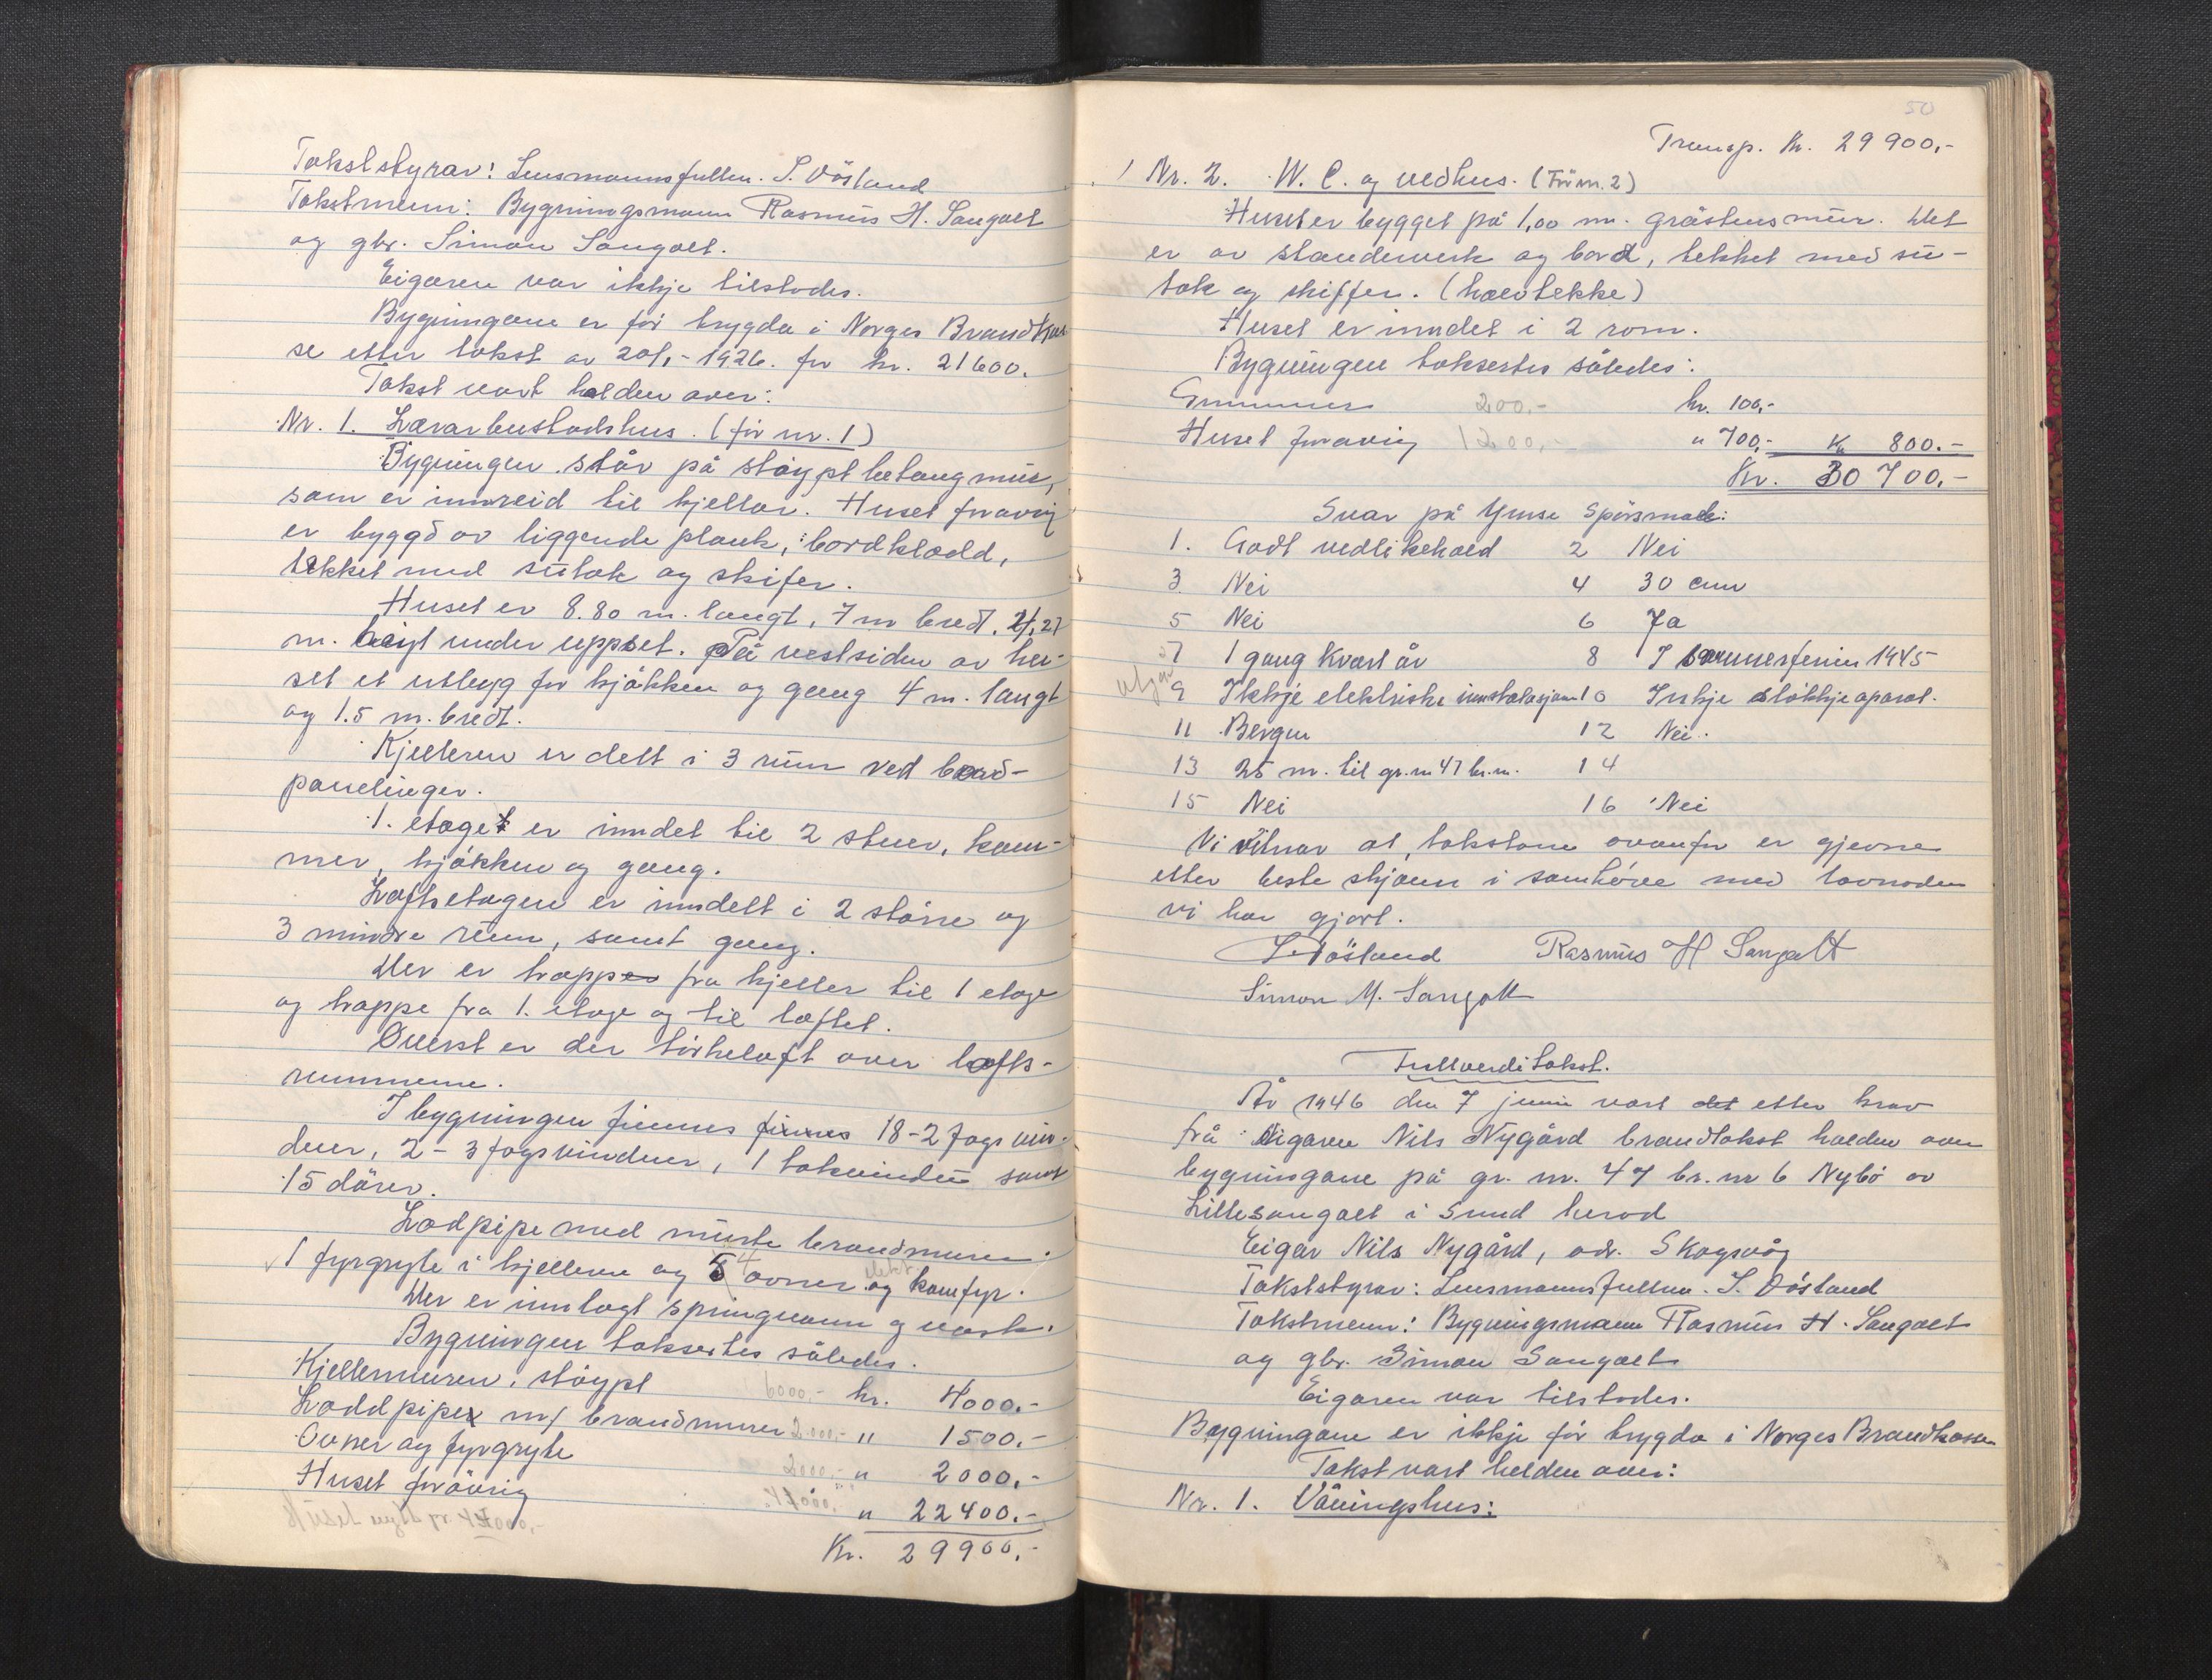 Takststyrar: Lensmannsfullm. S. Døsland
Takstmenn: Bygningsmann Rasmus H. Sangolt
og gbr. Simon Sangolt.
Eigaren var ikkje tilstades.
Bygningane er för trygda i Norges Brandkas-
se etter takst av 20/1-1926. for kr. 21600.
Takst vart halden over:
Nr. 1. Lærarbustadshus. (för nr. 1)
Bygningen står på stöypt betongmur,
som er innreid til kjellar. Huset forövrig
er byggd av liggende plank, bordklædd,
tekket med sutak og skifer.
Huset er 8.80 m. langt, 7 m bredt, 4,27
m. höigt under uppset. På vestsiden av hu-
set et utbygg for kjökken og gang 4 m. langt
og 1.5 m. bredt.
Kjelleren er delt i 3 rum ved bord-
panelinger.
1. etage er inndelt til 2 stuer, kam-
mer, kjökken og gang.
Loftsetagen er inndelt i 2 större og
3 mindre rum, samt gang.
Der er trapper fra kjeller til 1 etage
og trappe fra 1. etage og til loftet.
Överst er der törkeloft over lofts-
rummene.
I bygningen finnes finnes 18-2 fags vin-
duer, 2-3 fagsvinduer, 1 takvindu samt
15 dörer.
Lodpipe med murte brandmurer.
1 fyrgryte i kjelleren og 5 4 ovner elekt. og komfyr.
Der er innlagt springvann og vask.
Bygningen takseртes således.
Kjellermuren, stöypt 6000.- kr. 4000.-
Loddpipe m/ brandmurer 2000.- " 1500.-
Ovner og fyrgryte 2000.- " 2000.-
Huset forövrig " 22400.-
Kr. 29900,-
50
Transp. Kr. 29 900,-
Nr. 2. W. C. og vedhus. (För nr. 2)
Huset er bygget på 1,00 m. gråsteins mur. Det
er av standerverk og bord, tekket med su-
tak og skiffer. (halvtekke)
Huset er inndelt i 2 rom.
Bygningen taksertes således:
Grunnmur 200,- kr. 100,-
Huset forövrig 1200,- " 700,- Kr 800.-
Kr. 30 700,-
Svar på Ymse Spörsmål:
1. Godt vedlikehold 2 Nei
3. Nei 4 30 cm
5 Nei 6 Ja
7 1 gang kvart år 8 I sommerferien 1945
utgår 9 Ikkje elektriske innstalasjon 10 Inkje slökkjeaparat.
11 Bergen 12 Nei.
13 25 m. til gr.nr 47 br.nr. 14
15 Nei 16 Nei
Vi vitnar at takstane ovanfor er gjevne
etter beste skjönn i samhöve med lovnaden
vi har gjort.
S. Døsland Rasmus H Sangolt
Simon M. Sangolt
Fullverditakst.
År 1946 den 7 juni vart det etter krav
frå eigaren Nils Nygård brandtakst halden over
bygningane på gr. nr. 47 br. nr 6 Nybö av
Lillesangolt i Sund herad
Eigar Nils Nygård, adr. Skogsvåg
Takststyrar: Lensmannsfullm. S. Døsland
Takstmenn: Bygningsmann Rasmus H. Sangolt
og gbr. Simon Sangolt
Eigaren var tilstades.
Bygningane er ikkje för trygda i Norges Brandkasse
Takst vart halden over:
Nr. 1. Våningshus: